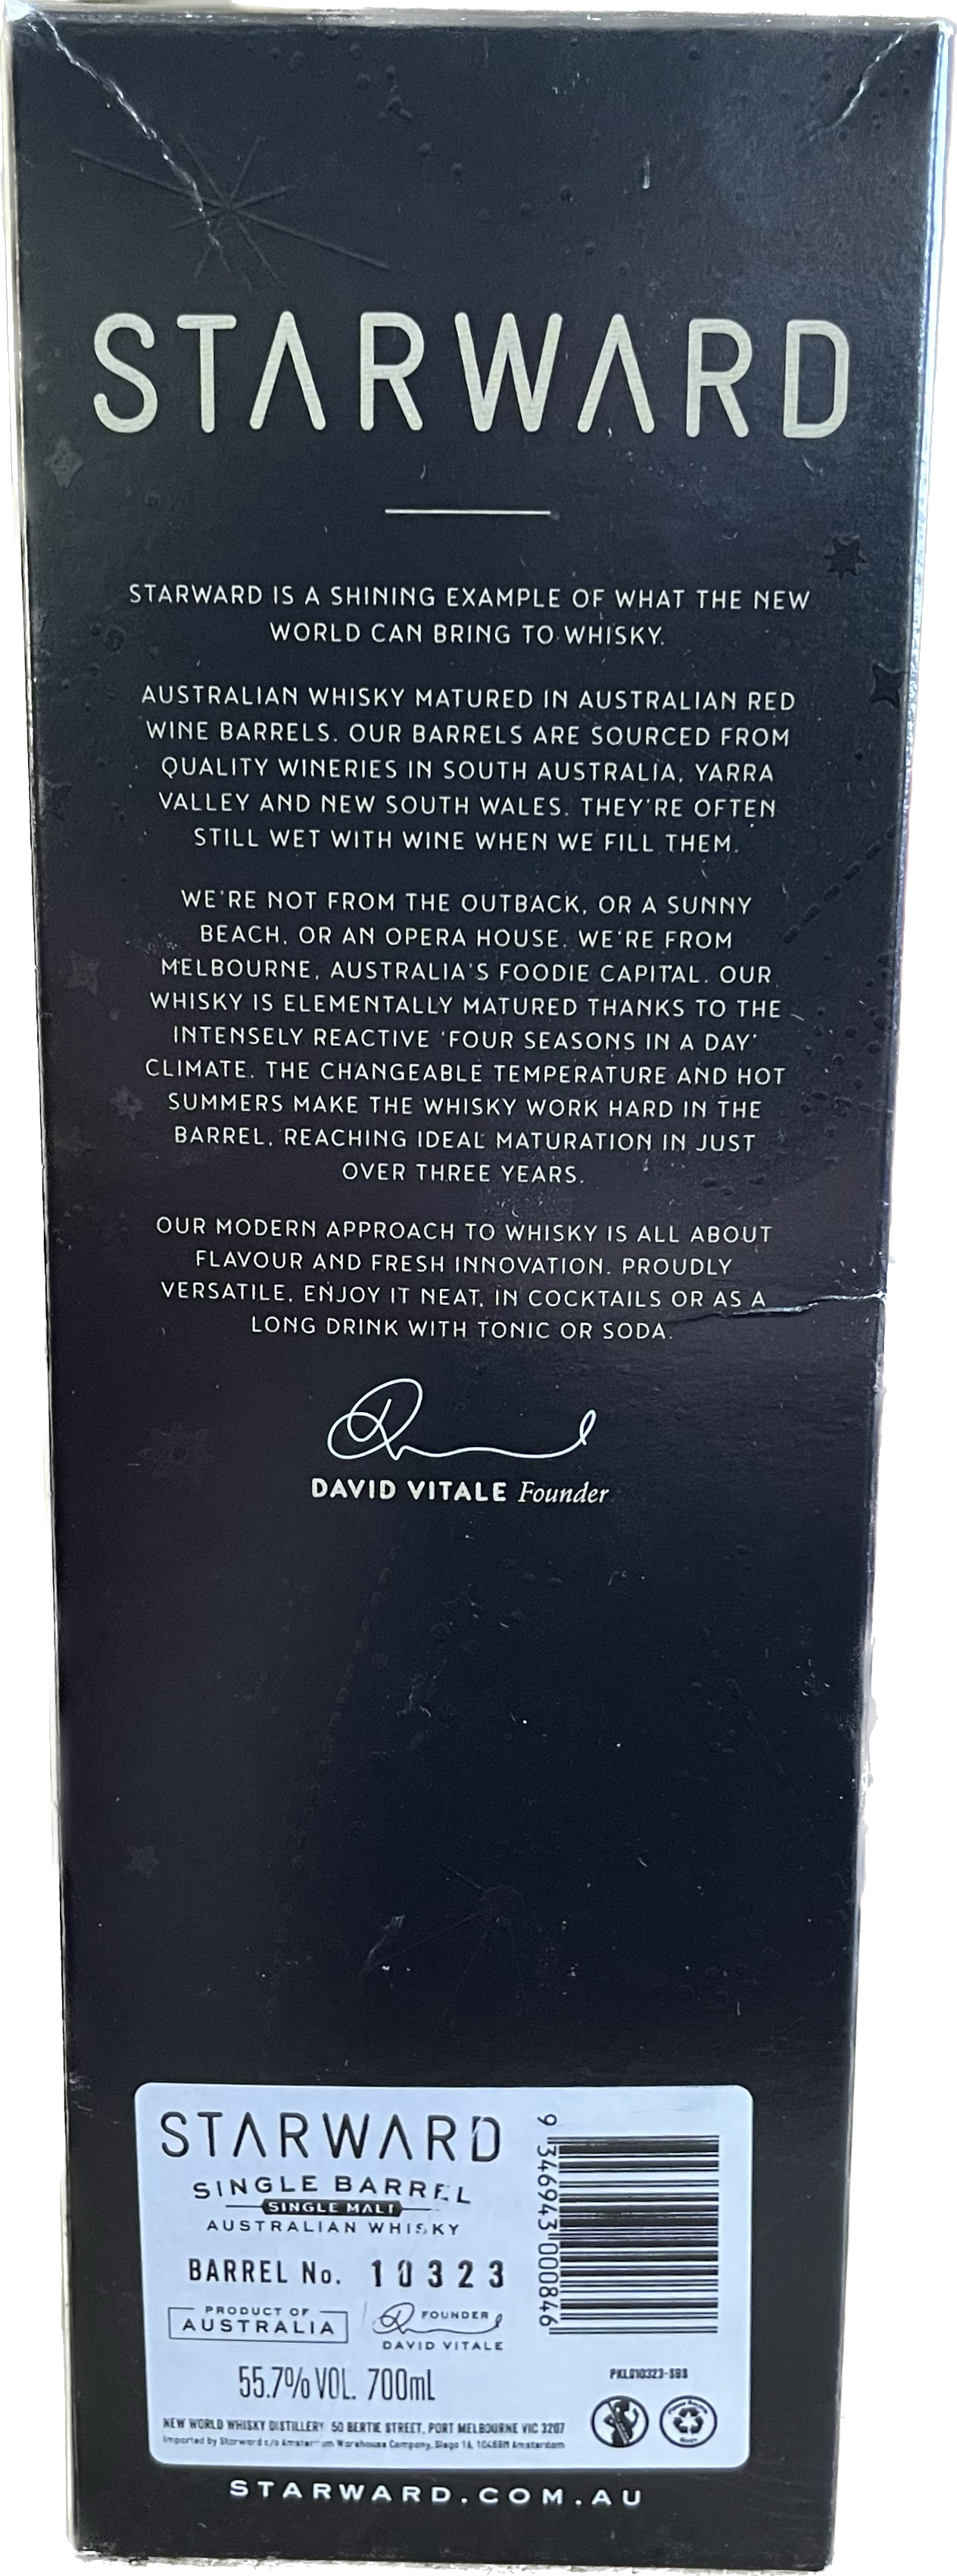 STARWARD
STARWARD IS A SHINING EXAMPLE OF WHAT THE NEW
WORLD CAN BRING TO WHISKY.
AUSTRALIAN WHISKY MATURED IN AUSTRALIAN RED
WINE BARRELS. OUR BARRELS ARE SOURCED FROM
QUALITY WINERIES IN SOUTH AUSTRALIA, YARRA
VALLEY AND NEW SOUTH WALES. THEY'RE OFTEN
STILL WET WITH WINE WHEN WE FILL THEM.
WE'RE NOT FROM THE OUTBACK, OR A SUNNY
BEACH, OR AN OPERA HOUSE. WE'RE FROM
MELBOURNE, AUSTRALIA'S FOODIE CAPITAL. OUR
WHISKY IS ELEMENTALLY MATURED THANKS TO THE
INTENSELY REACTIVE 'FOUR SEASONS IN A DAY'
CLIMATE. THE CHANGEABLE TEMPERATURE AND HOT
SUMMERS MAKE THE WHISKY WORK HARD IN THE
BARREL, REACHING IDEAL MATURATION IN JUST
OVER THREE YEARS.
OUR MODERN APPROACH TO WHISKY IS ALL ABOUT
FLAVOUR AND FRESH INNOVATION. PROUDLY
VERSATILE, ENJOY IT NEAT, IN COCKTAILS OR AS A
LONG DRINK WITH TONIC OR SODA.
DAVID VITALE Founder
STARWARD
SINGLE BARREL
SINGLE MALT
AUSTRALIAN WHISKY
BARREL No. 10323
PRODUCT OF
AUSTRALIA
FOUNDER
DAVID VITALE
55.7% VOL. 700mL
NEW WORLD WHISKY DISTILLERY 50 BERTIE STREET, PORT MELBOURNE VIC 3207
Imported by Starward c/o Amsterdam Warehouse Company, Siego 1A, Amsterdam
9 346943 000846
PKL010323-SBS
STARWARD.COM.AU